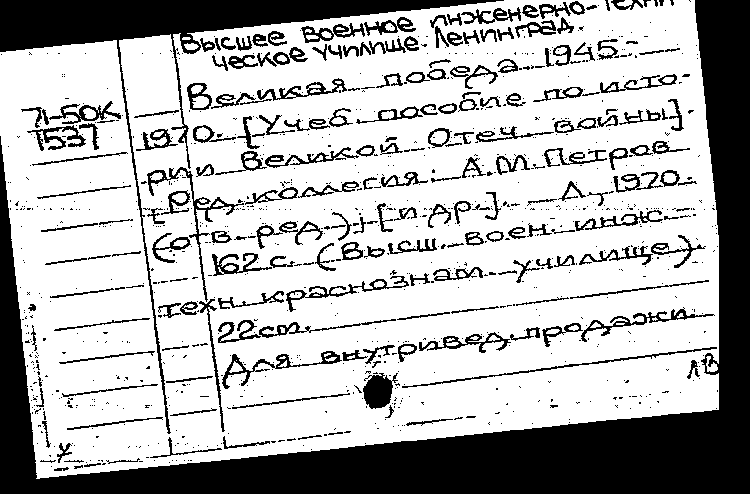 Высшее военное инженерно-техни
ческое училище. Ленинград.
Великая победа 1945-
71-50К
1537
1970. [Учеб. пособие по исто-
рии Великой Отеч. войны].
[Ред. коллегия: А.М. Петров
(отв. ред.) и [и др.]. — Л., 1970.
162 с. (Высш. воен. инж.
техн. краснознам. училище).
22 см.
Для внутривед. продажи.
ЛВ
У